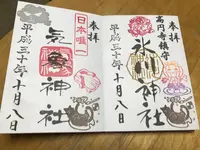 奉拝
高円寺鎮守
氷川神社
平成三十年十月八日
奉拝
日本唯一
気象神社
平成三十年十月八日